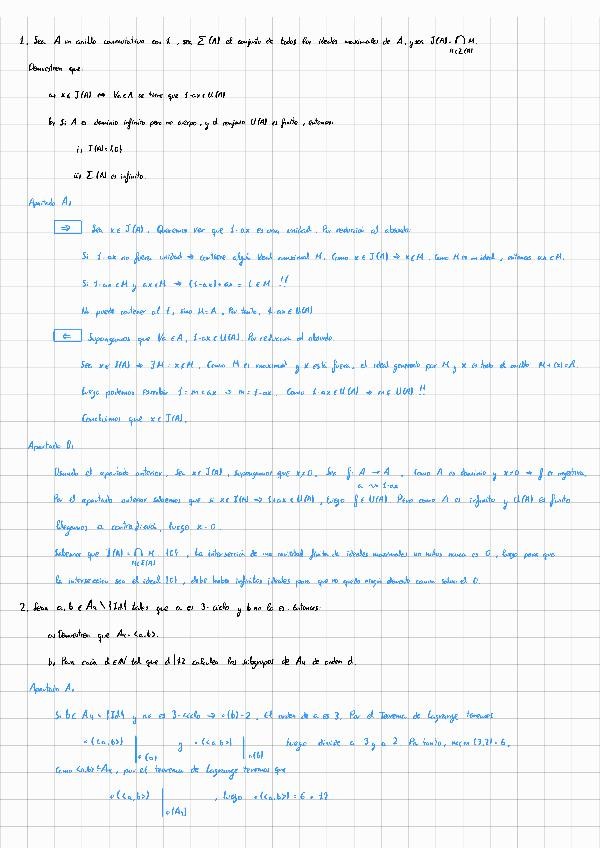 1. Sea A un anillo conmutativo con 1, sea Σ(A) el conjunto de todos los ideales maximales de A, y sea J(A) = ∩ M.
M∈Σ(A)
Demuestren que:
a) x∈J(A) ⇔ ∀a∈A se tiene que 1-ax∈U(A)
b) Si A es dominio infinito pero no cuerpo, y el conjunto U(A) es finito, entonces:
i) J(A)={0}
ii) Σ(A) es infinito.
Apartado A)
⇒ Sea x∈J(A). Queremos ver que 1-ax es una unidad. Por reducción al absurdo:
Si 1-ax no fuera unidad ⇒ contiene algún ideal maximal M. Como x∈J(A) ⇒ x∈M. Como M es ideal, entonces ax∈M.
Si 1-ax∈M y ax∈M ⇒ (1-ax)+ax = 1∈M !!
No puede contener al 1, sino M=A. Por tanto, 1-ax∈U(A)
⇐ Supongamos que ∀a∈A, 1-ax∈U(A). Por reducción al absurdo.
Sea x∉J(A) ⇒ ∃M: x∉M. Como M es maximal y x está fuera, el ideal generado por M y x es todo el anillo M+(x)=A.
Luego podemos escribir 1=m+ax ⇒ m=1-ax. Como 1-ax∈U(A) ⇒ m∈U(A) !!
Concluimos que x∈J(A).
Apartado B)
Usando el apartado anterior, sea x∈J(A), supongamos que x≠0. Sea f: A → A. Como A es dominio y x≠0 ⇒ f es inyectiva.
a ↝ 1-ax
Por el apartado anterior sabemos que si x∈J(A) ⇒ 1-ax∈U(A), luego f∈U(A). Pero como A es infinito y U(A) es finito
llegamos a contradicción, luego x=0.
Sabemos que J(A) = ∩ M = {0}, la intersección de una cantidad finita de ideales maximales no nulos nunca es 0, luego para que
M∈Σ(A)
la intersección sea el ideal {0}, debe haber infinitos ideales para que no quede ningún elemento común salvo el 0.
2. Sean a,b∈A₄\{Id} tales que a es 3-ciclo y b no lo es. Entonces:
a) Demuestren que A₄=<a,b>.
b) Para cada d∈ℕ tal que d|12 calcula los subgrupos de A₄ de orden d.
Apartado A)
Si b∈A₄\{Id} y no es 3-ciclo ⇒ o(b)=2, el orden de a es 3. Por el Teorema de Lagrange tenemos
o(<a,b>) | o(a) y o(<a,b>) | o(b) luego divide a 3 y a 2. Por tanto, mcm(3,2)=6,
Como <a,b>≤A₄, por el teorema de Lagrange tenemos que
o(<a,b>) | o(A₄) , luego o(<a,b>) = 6 o 12